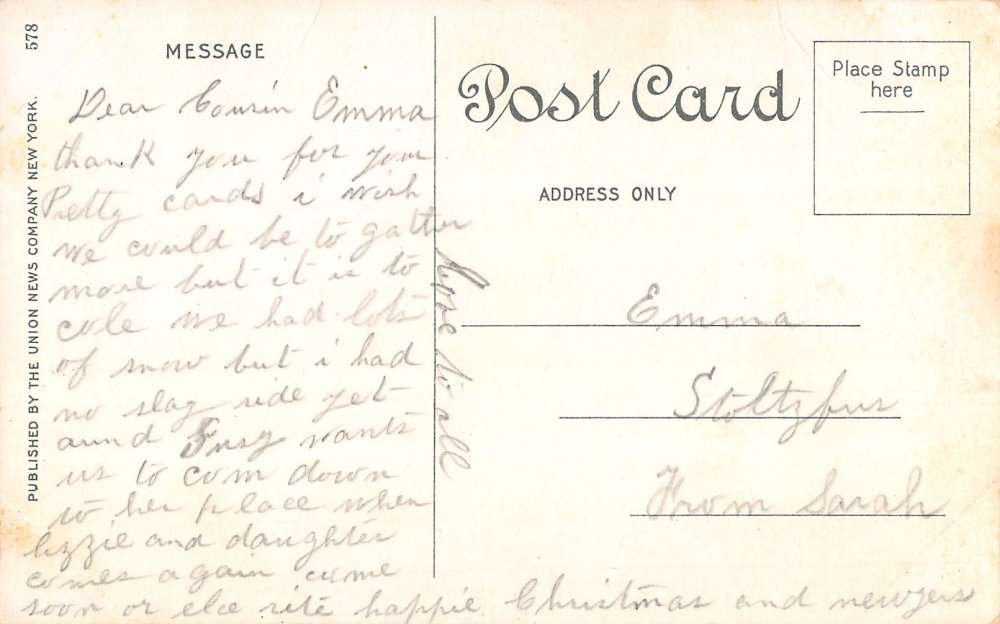 578
PUBLISHED BY THE UNION NEWS COMPANY NEW YORK.
MESSAGE
Dear Cousin Emma
thank you for your
Pretty cards i wish
we could be to gatter
more but it is to
cole we had lots
of snow but i had
no slay ride yet
aund Susy wants
us to com down
to her place when
lizzie and daughter
comes again come
soon or elce rite happie Christmas and newyers
Love to all
Post Card
Place Stamp
here
ADDRESS ONLY
Emma
Stoltzfus
From Sarah